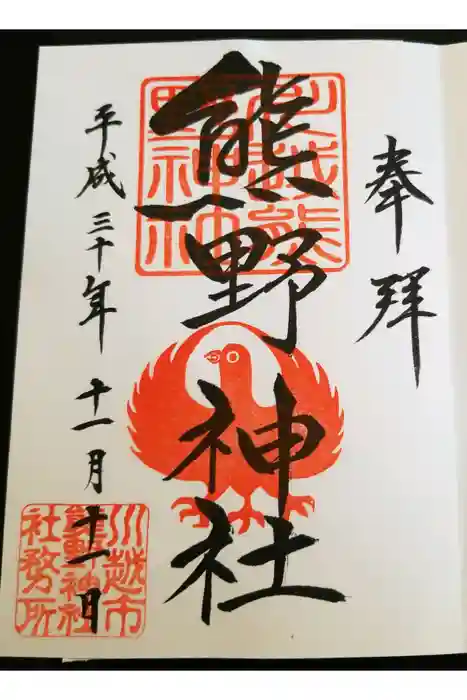 奉拝
川越熊
野神社
熊野神社
平成三十年十一月十一日
川越市
熊野神社
社務所